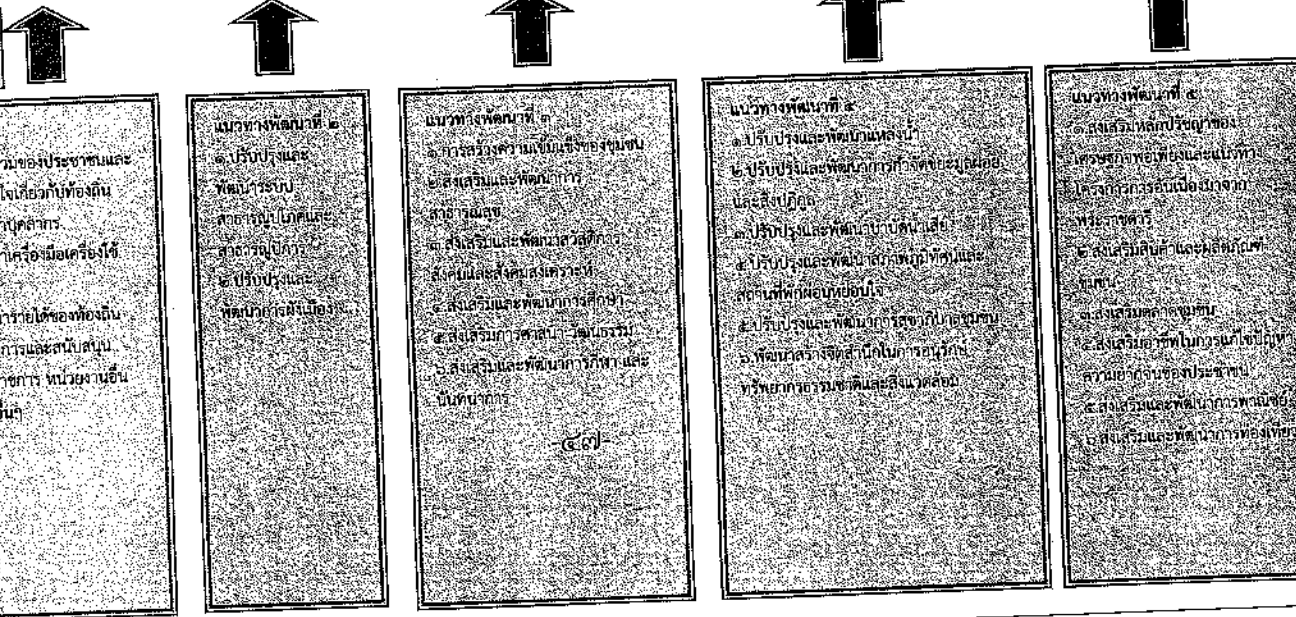 วมของประชาชนและ
ใจเกี่ยวกับท้องถิ่น
าบุคลากร
าเครื่องมือเครื่องใช้
ารายได้ของท้องถิ่น
การและสนับสนุน
าชการ หน่วยงานอื่น
อื่นๆ
แนวทางพัฒนาที่ ๒
๑.ปรับปรุงและ
พัฒนาระบบ
สาธารณูปโภคและ
สาธารณูปการ
๒.ปรับปรุงและ
พัฒนาการผังเมือง
แนวทางพัฒนาที่ ๓
๑.การสร้างความเข้มแข็งของชุมชน
๒.ส่งเสริมและพัฒนาการ
สาธารณสุข
๓.ส่งเสริมและพัฒนาสวัสดิการ
สังคมและสังคมสงเคราะห์
๔.ส่งเสริมและพัฒนาการศึกษา
๕.ส่งเสริมการศาสนา วัฒนธรรม
๖.ส่งเสริมและพัฒนาการกีฬา และ
นันทนาการ
-๔๗-
แนวทางพัฒนาที่ ๔
๑.ปรับปรุงและพัฒนาแหล่งน้ำ
๒.ปรับปรุงและพัฒนาการกำจัดขยะมูลฝอย
และสิ่งปฏิกูล
๓.ปรับปรุงและพัฒนาบำบัดน้ำเสีย
๔.ปรับปรุงและพัฒนาสภาพภูมิทัศน์และ
สถานที่พักผ่อนหย่อนใจ
๕.ปรับปรุงและพัฒนาการสุขาภิบาลชุมชน
๖.พัฒนาสร้างจิตสำนึกในการอนุรักษ์
ทรัพยากรธรรมชาติและสิ่งแวดล้อม
แนวทางพัฒนาที่ ๕
๑.ส่งเสริมหลักปรัชญาของ
เศรษฐกิจพอเพียงและแนวทาง
โครงการการอันเนื่องมาจาก
พระราชดำริ
๒.ส่งเสริมสินค้าและผลิตภัณฑ์
ชุมชน
๓.ส่งเสริมตลาดชุมชน
๔.ส่งเสริมอาชีพในการแก้ไขปัญหา
ความยากจนของประชาชน
๕.ส่งเสริมและพัฒนาการพาณิชย์
๖.ส่งเสริมและพัฒนาการท่องเที่ยว